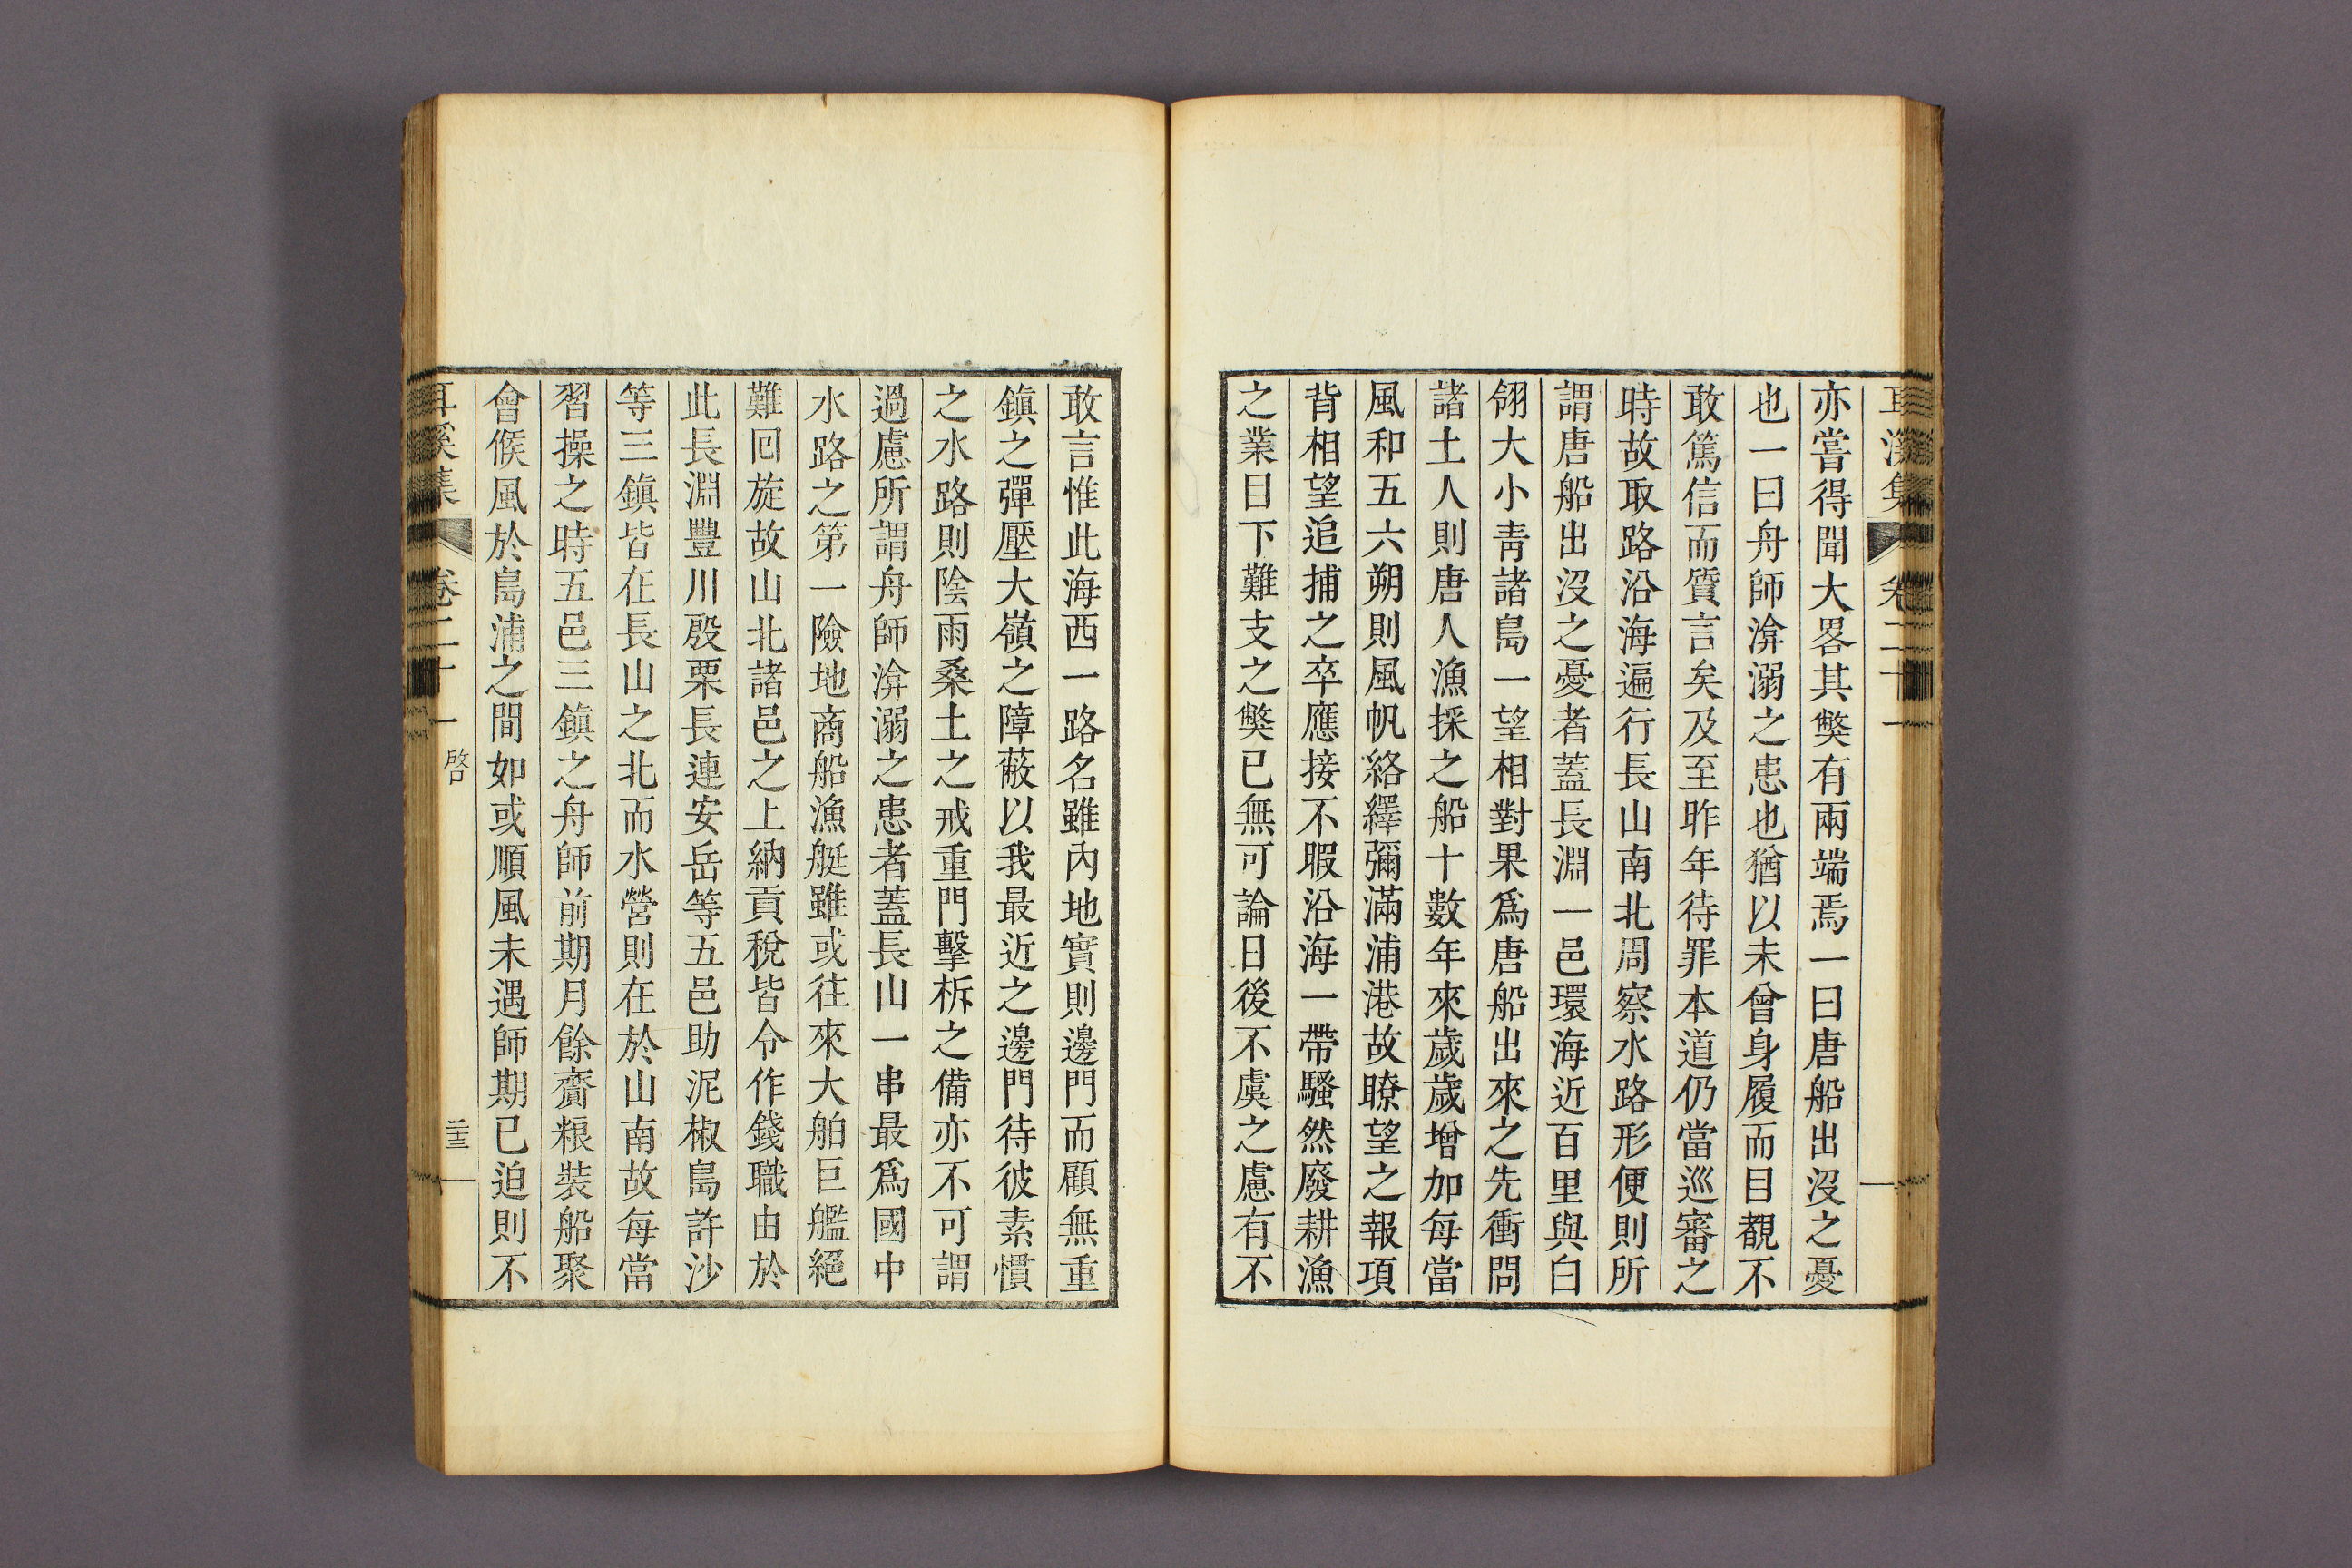 耳溪集 卷二十一
亦嘗得聞大畧其弊有兩端焉一曰唐船出沒之憂
也一曰舟師渰溺之患也猶以未曾身履而目覩不
敢篤信而質言矣及至昨年待罪本道仍當巡審之
時故取路沿海遍行長山南北周察水路形便則所
謂唐船出沒之憂者蓋長淵一邑環海近百里與白
翎大小靑諸島一望相對果爲唐船出來之先衝問
諸土人則唐人漁採之船十數年來歲歲增加每當
風和五六朔則風帆絡繹彌滿浦港故瞭望之報項
背相望追捕之卒應接不暇沿海一帶騷然廢耕漁
之業目下難支之弊已無可論日後不虞之慮有不
敢言惟此海西一路名雖內地實則邊門而顧無重
鎭之彈壓大嶺之障蔽以我最近之邊門待彼素慣
之水路則陰雨桑土之戒重門擊柝之備亦不可謂
過慮所謂舟師渰溺之患者蓋長山一串最爲國中
水路之第一險地商船漁艇雖或往來大舶巨艦絕
難回旋故山北諸邑之上納貢稅皆令作錢職由於
此長淵豐川殷栗長連安岳等五邑助泥椒島許沙
等三鎭皆在長山之北而水營則在於山南故每當
習操之時五邑三鎭之舟師前期月餘齎粮裝船聚
會候風於島浦之間如或順風未遇師期已迫則不
耳溪集 卷二十一 啓 二十三